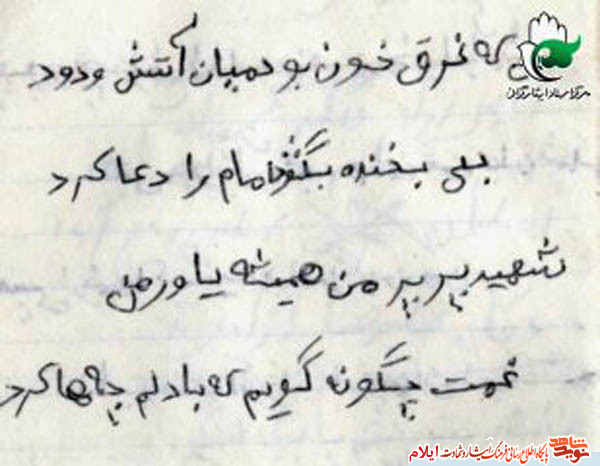 که غرق خون بود میان آتش و دود
بسی بخنده بگفتا مام را دعا کرد
شهید پرپر من همیشه یاور من
غمت چگونه گویم که با دلم چه ها کرد
مرکز اسناد ایثارگران
نوید شاهد
پایگاه اطلاع رسانی فرهنگ ایثار و شهادت ایلام